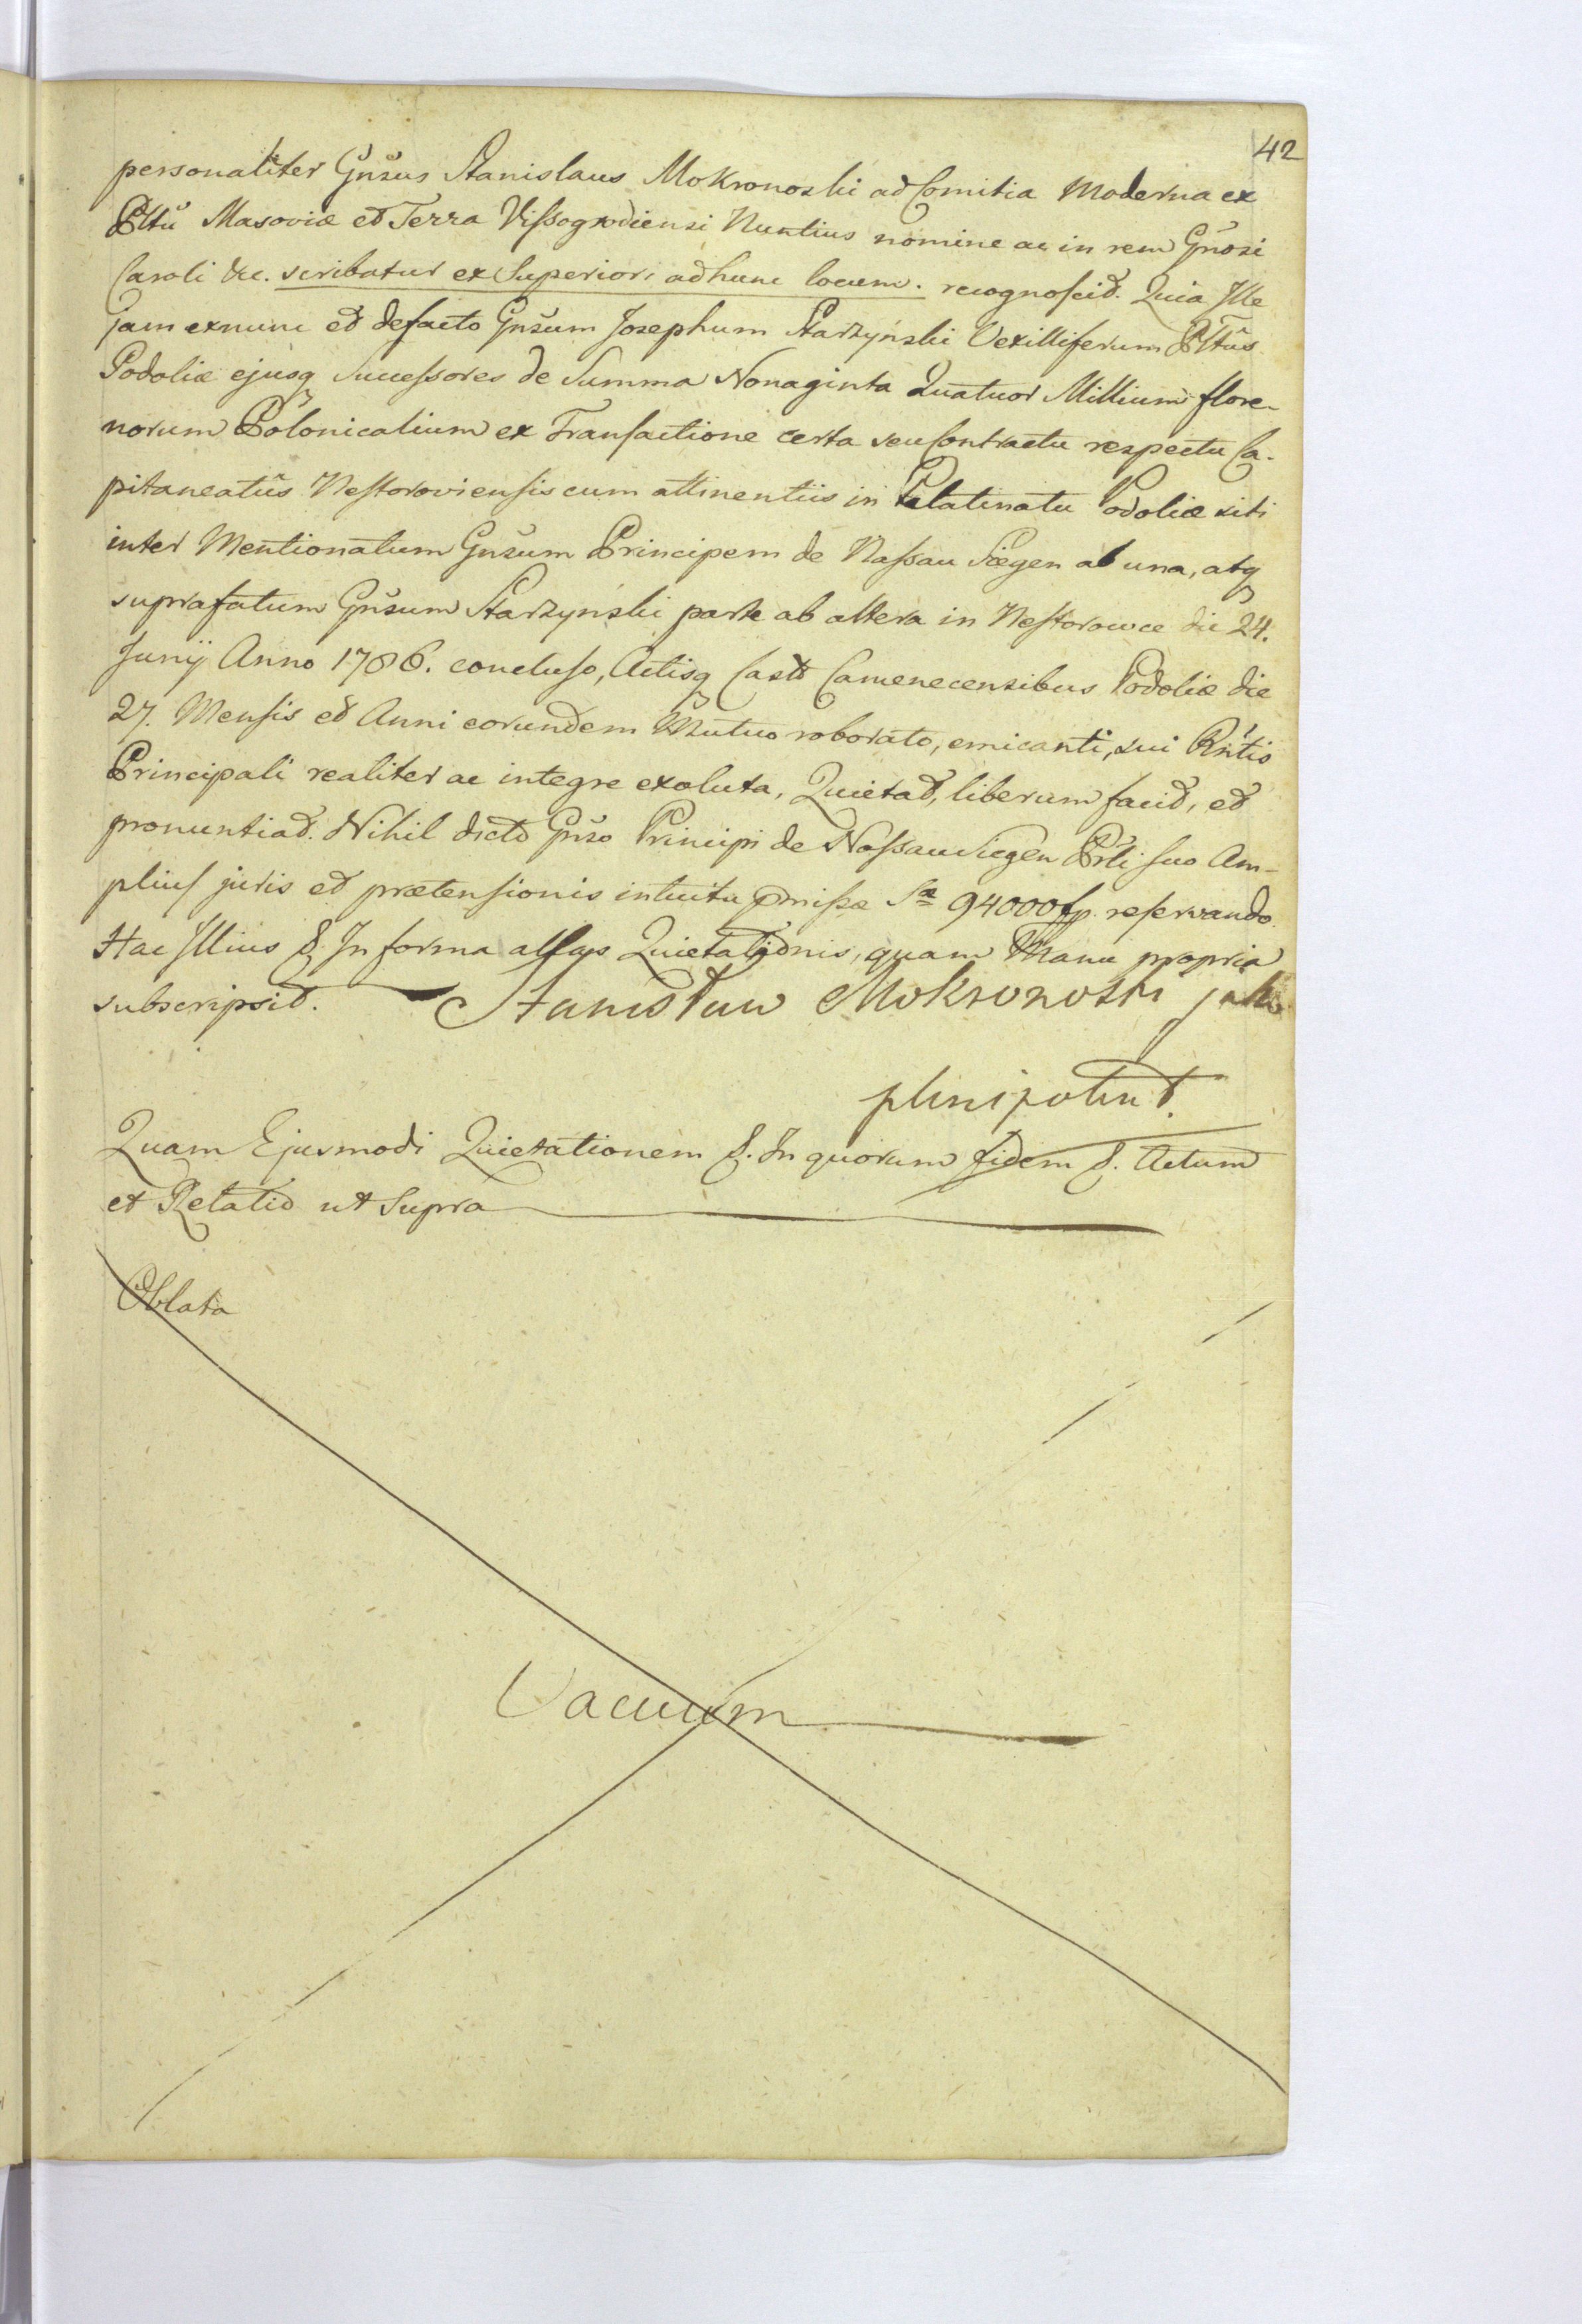 42
personaliter Gnšus Stanislaus Mokronoski ad Comitia Moderna ex
Pltũ Masoviæ et Terra Vissogrodiensi Nuntius nomine ac in rem Gnosi
Caroli &c. scribatur ex Superiori ad hunc locum. recognoscit. Quia Ille
jam exnunc et defacto Gnšum Josephum Starzynski Vexilliferum Pltũs
Podoliæ ejusq Successores de Summa Nonaginta Quatuor Millium flore-
norum Polonicalium ex Transactione certa seu Contractu respectu Ca-
pitaneatûs Nestoroviensis cum attinentiis in Palatinatu Podoliæ siti
inter Mentionatum Gnšum Principem de Nassau Siegen ab una, atq
suprafatum Gnšum Starzynski parte ab altera in Nestorowce die 24.
Junij Anno 1786. concluso, Actisq Castr Camenecensibus Podoliæ die
27. Mensis et Anni eorundem Mutuo roborato, emicanti, sui Pntis
Principali realiter ac integre exoluta, Quietat, liberum facit, et
pronuntiat. Nihil dicto Gnšo Principi de Nassau Siegen Prli suo Am-
plius juris et prætensionis intuitu pmissæ Sæ 94000 fp. reservando.
Hac Illius &. In forma Quietationis, quam Manu propria
subscripsit. Stanisław Mokronoski jako
plenipotent.
Quam Ejusmodi Quietationem &. In quorum fidem &. Actum
et Relatio ut Supra
Oblata
Vacuum